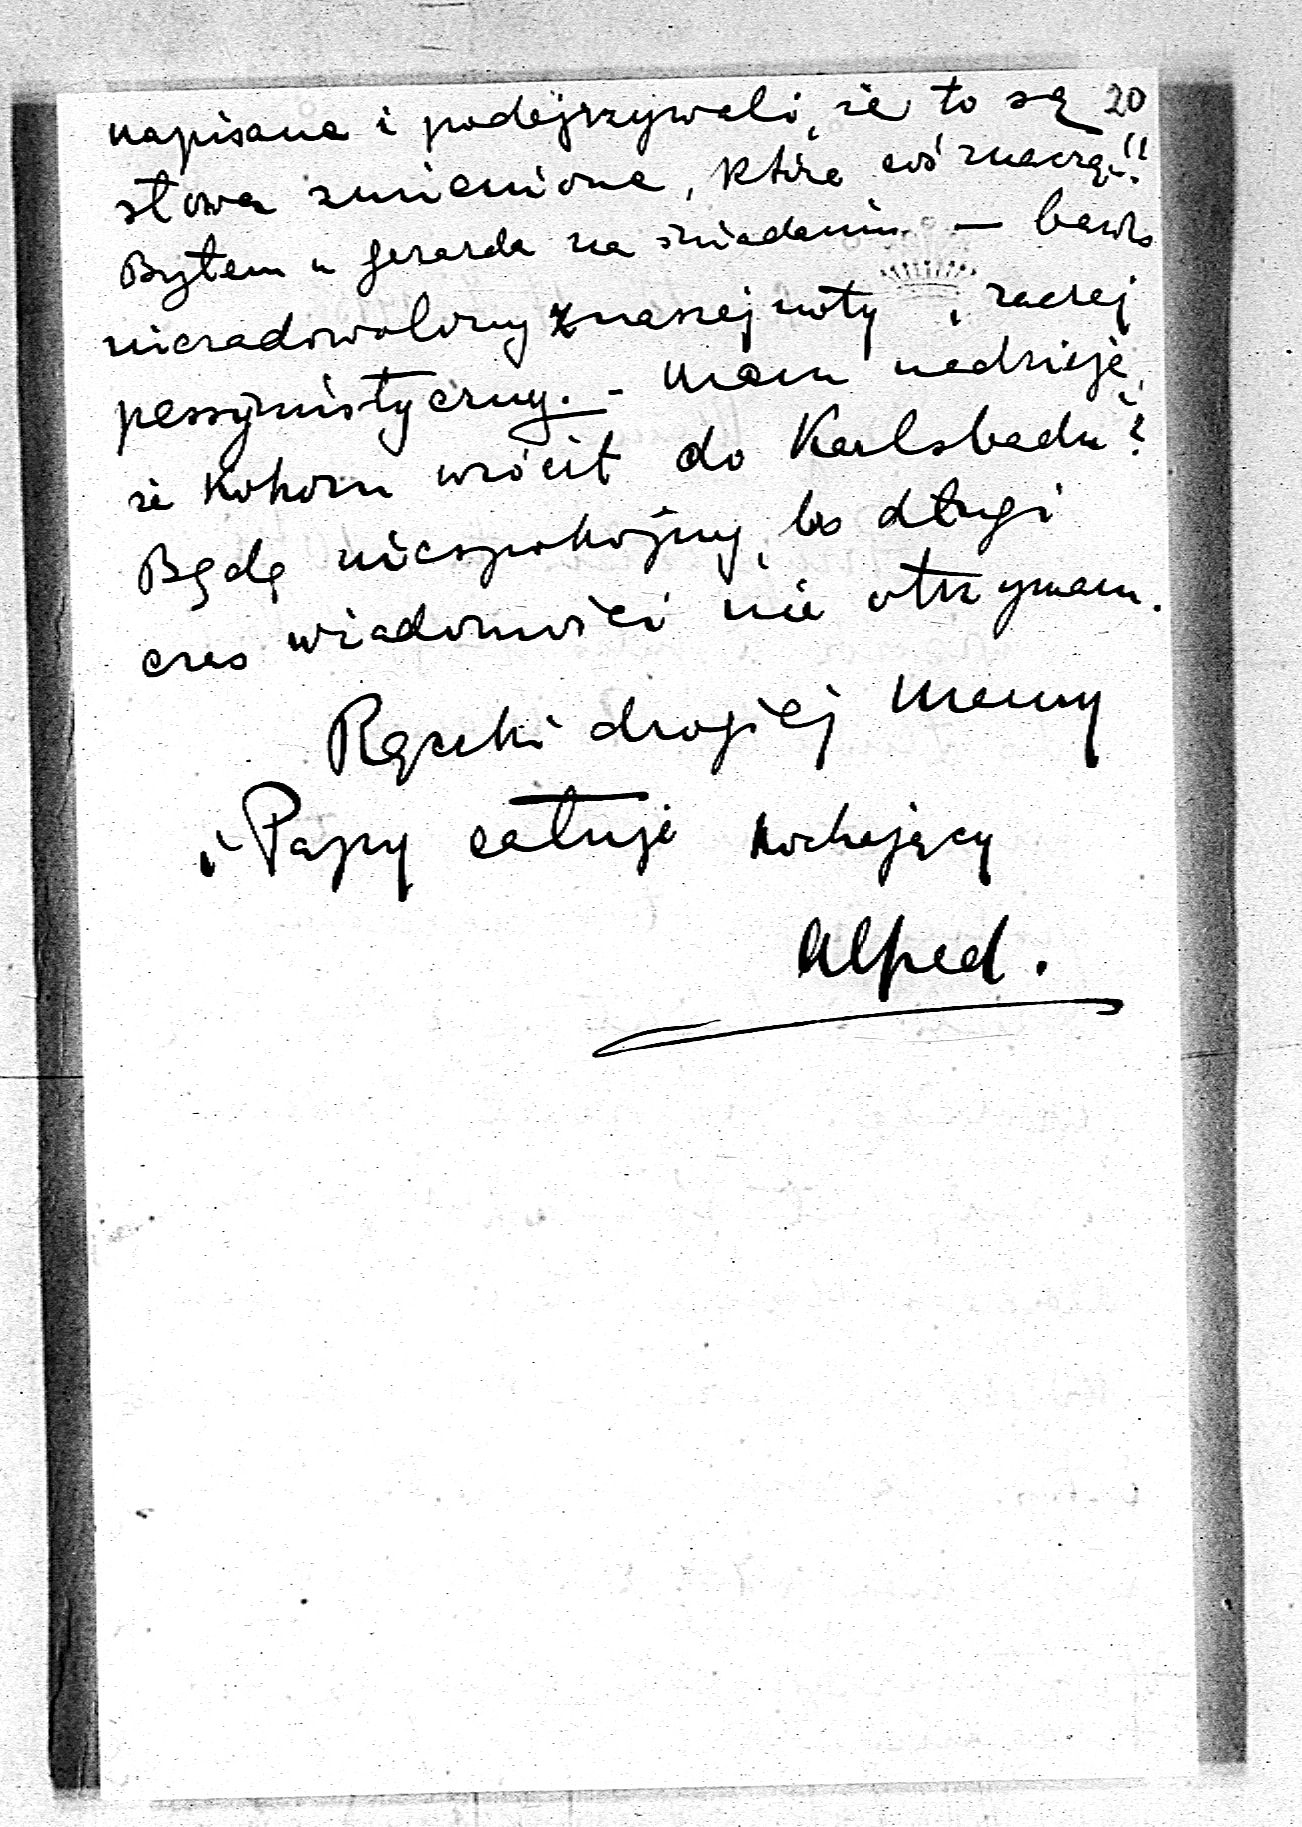 20
napisane i podejrzywali, że to są
słowa zmienione, które coś znaczą!!
Byłem u Gerarda na śniadaniu — bardzo
niezadowolony z naszej noty, raczej
pessymistyczny. - Mam nadzieję,
że Kohorn wrócił do Karlsbadu?
Będę niespokojny, bo długi
czas wiadomości nie otrzymam.
Rączki drogiej Mamy
i Papy całuje kochający
Alfred.